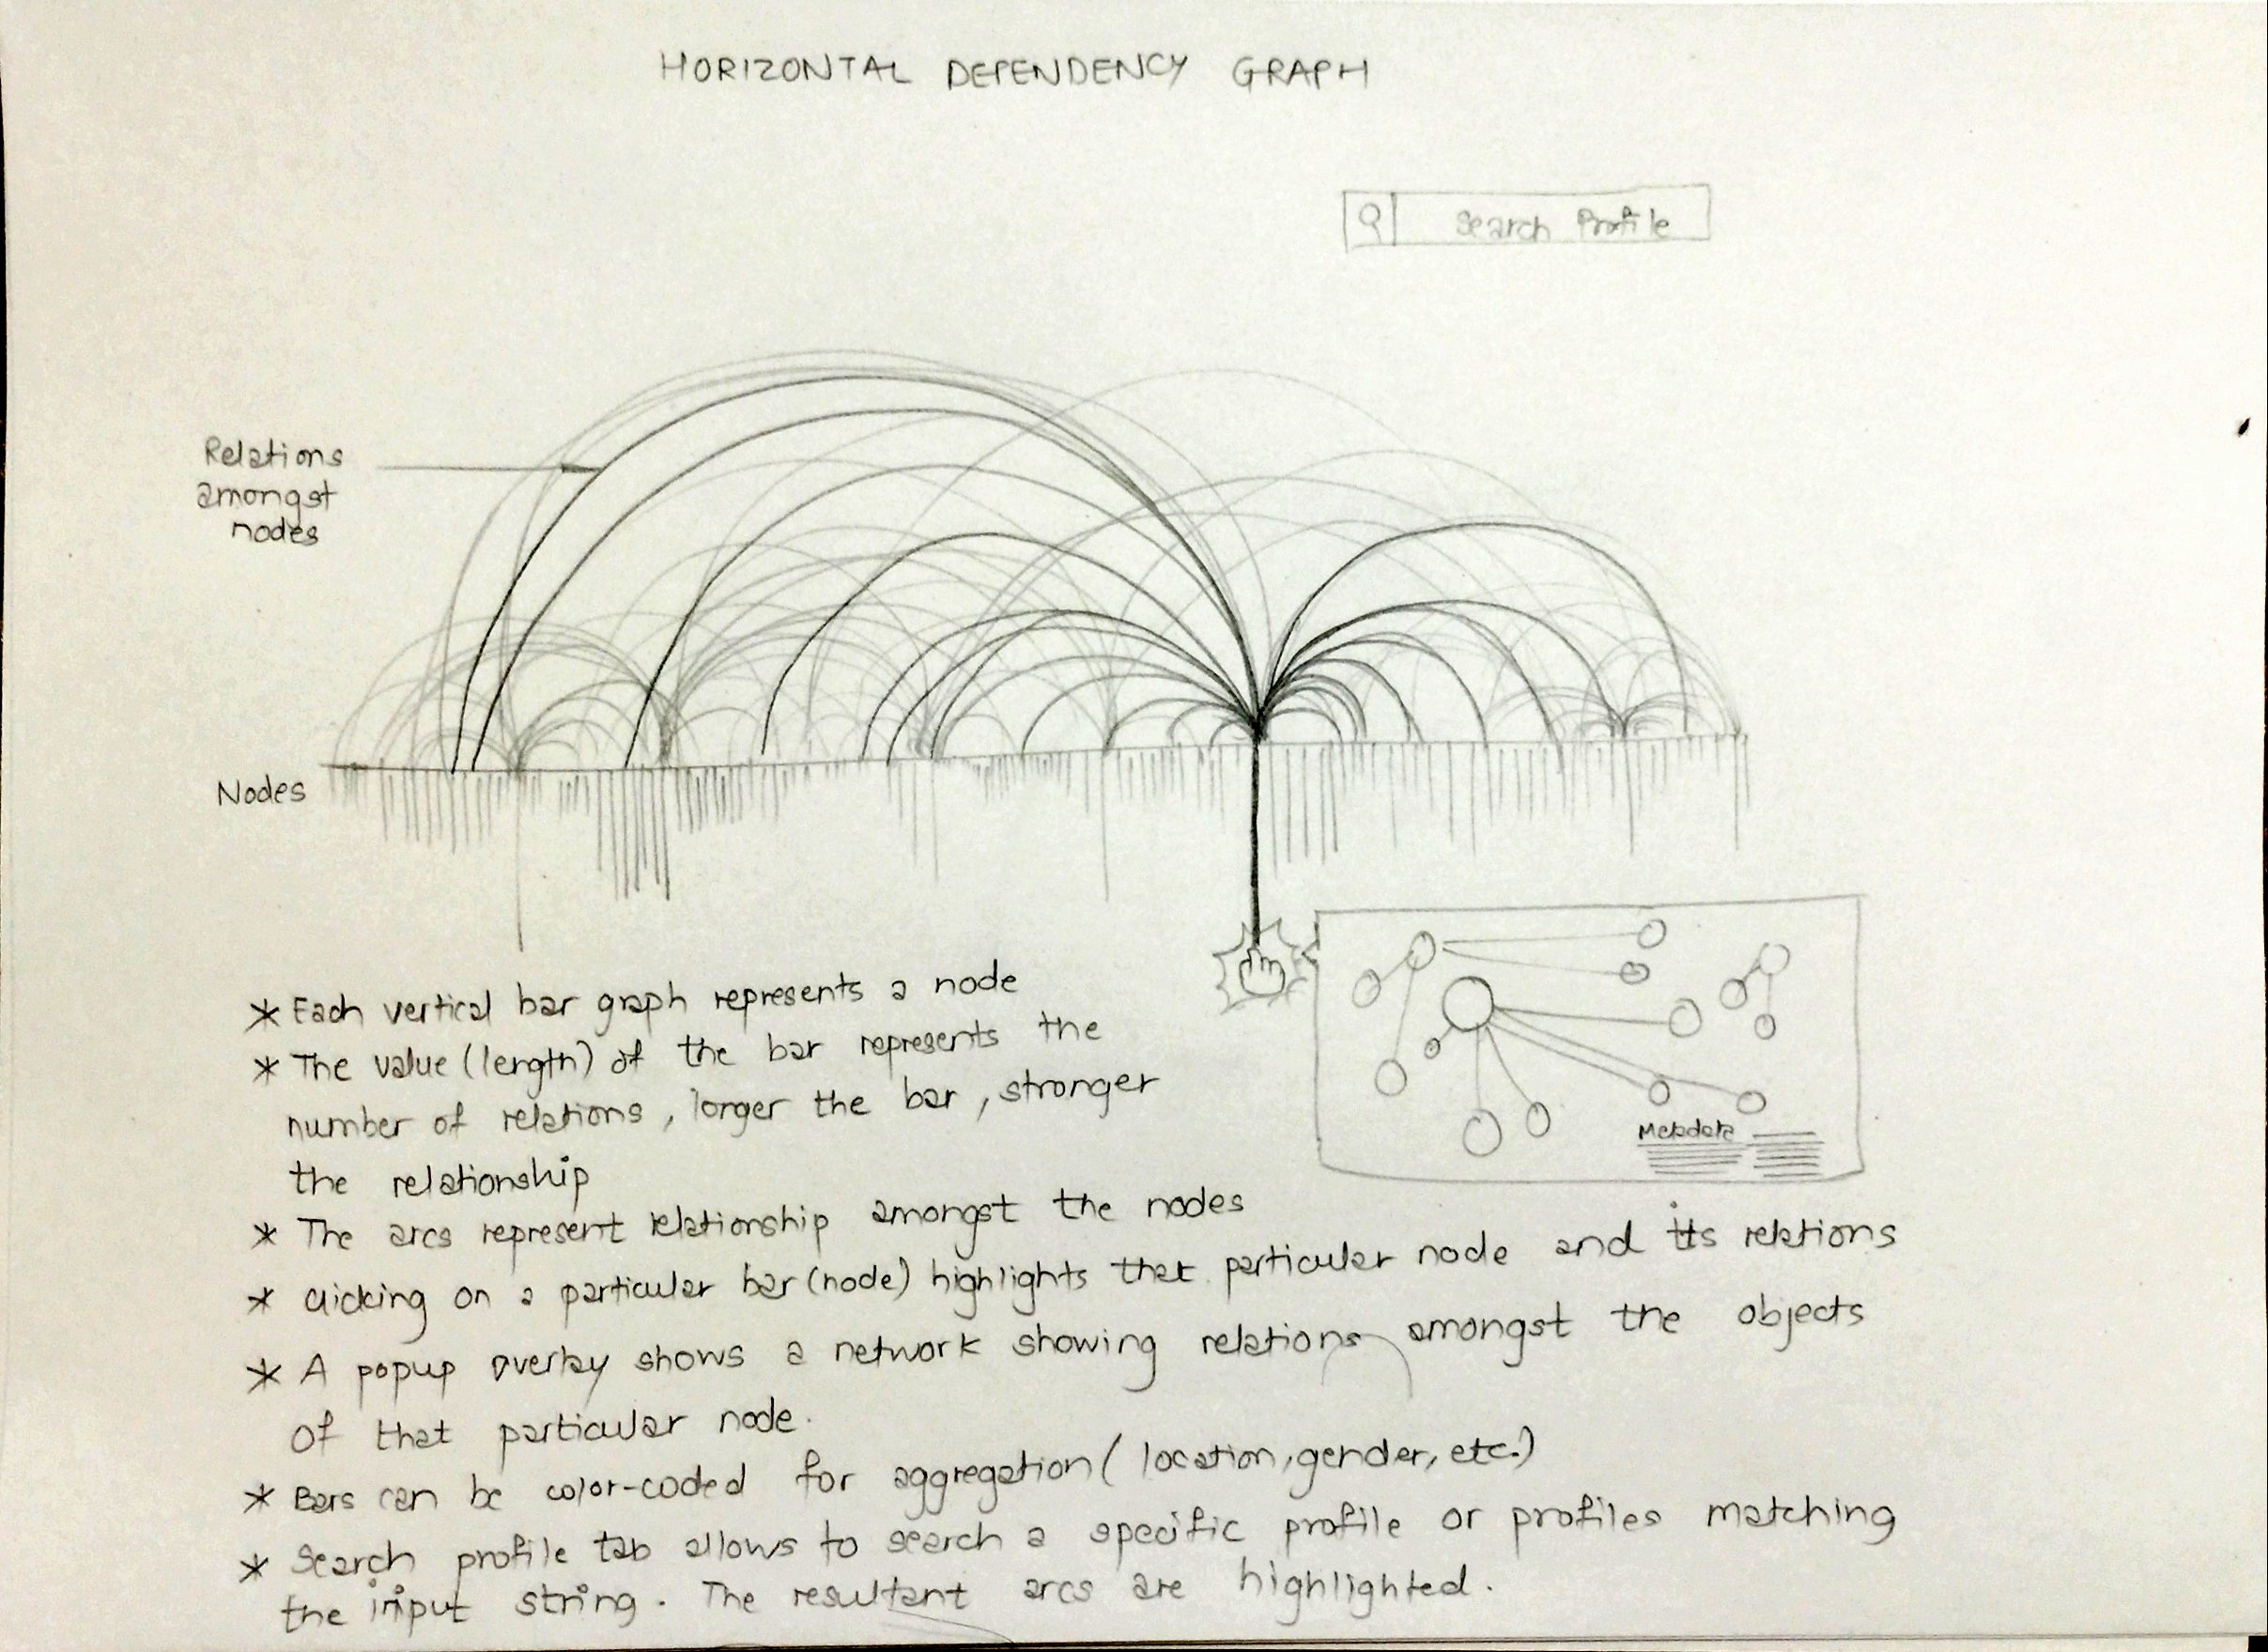 HORIZONTAL DEPENDENCY GRAPH
Search Profile
Relations
amongst
nodes
Nodes
* Each vertical bar graph represents a node
* The value (length) of the bar represents the
number of relations, longer the bar, stronger
the relationship
Metadata
* The arcs represent relationship amongst the nodes
* Clicking on a particular bar (node) highlights that particular node and its relations
* A popup overlay shows a network showing relations amongst the objects
of that particular node.
* Bars can be color-coded for aggregation (location, gender, etc.)
* Search profile tab allows to search a specific profile or profiles matching
the input string. The resultant arcs are highlighted.